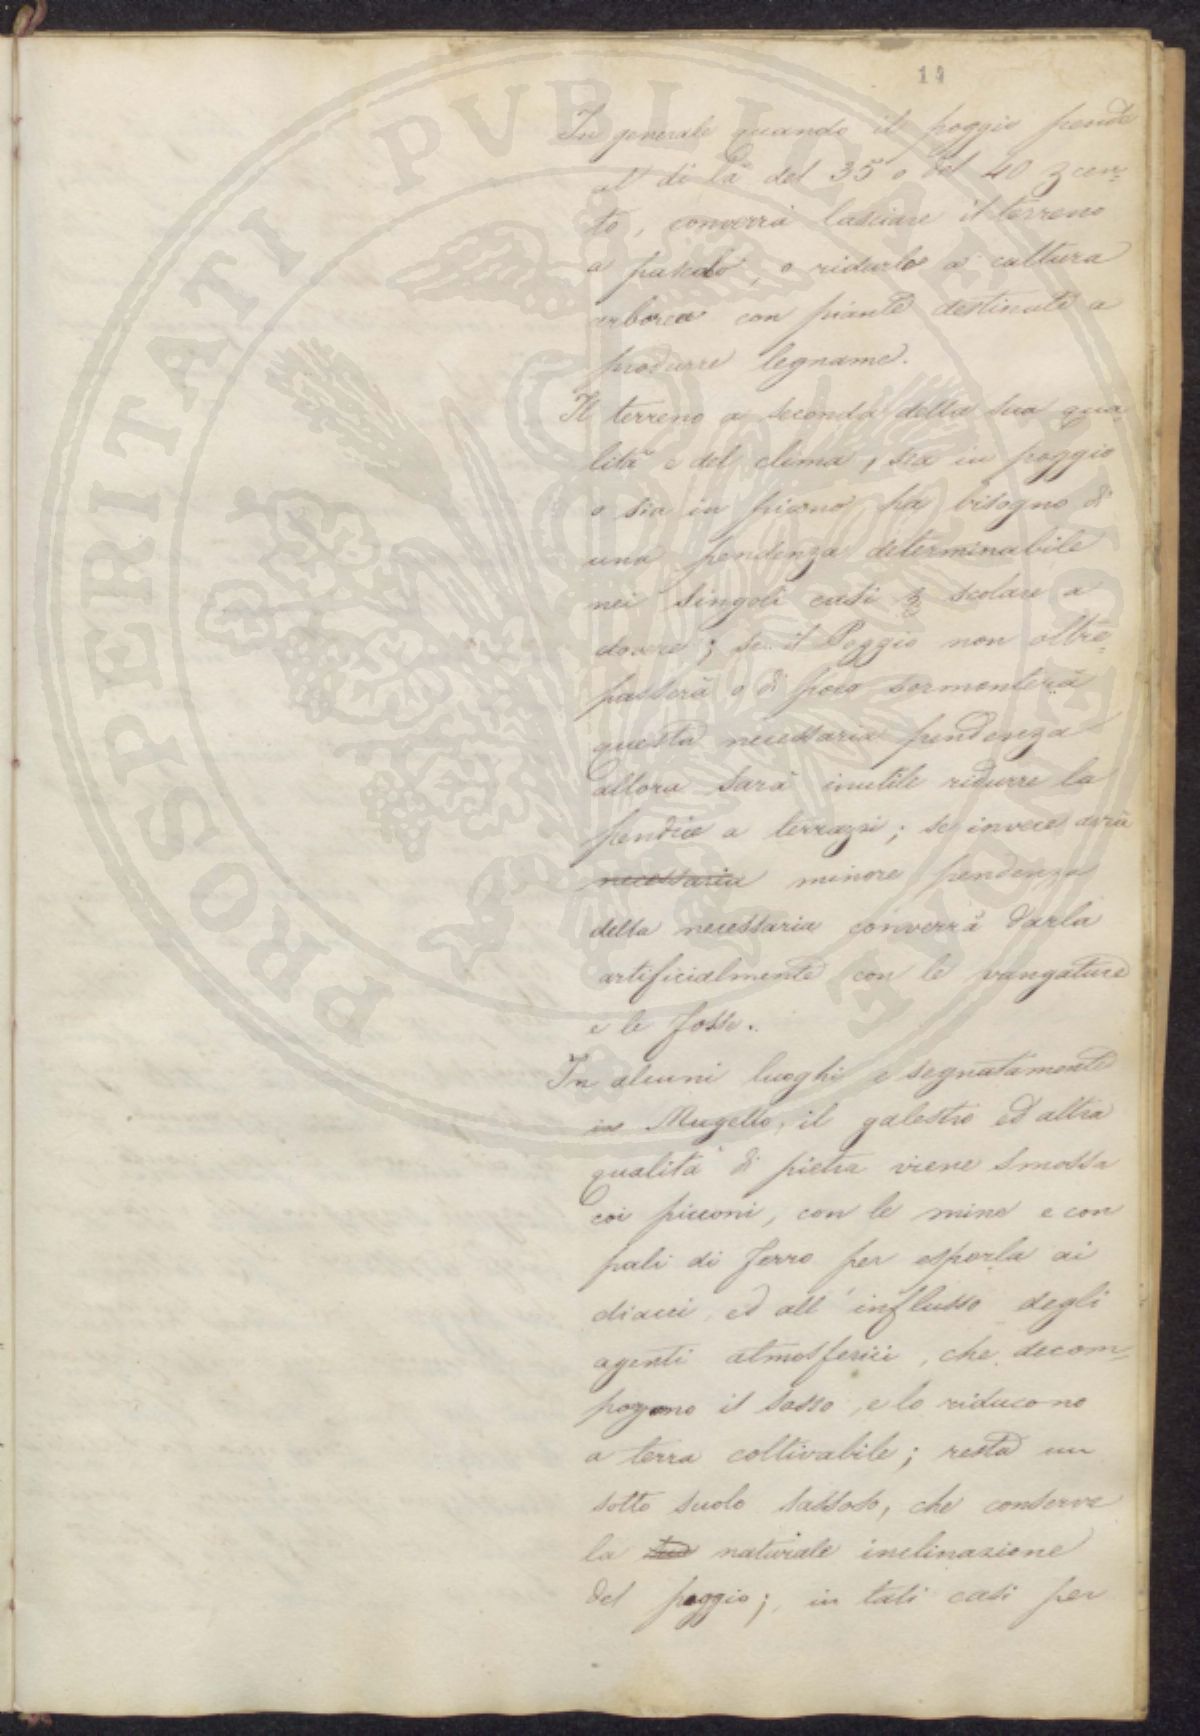 14
In generale quando il poggio pende
al di là del 35 o del 40 p cen-
to, converrà lasciare il terreno
a pascolo, o ridurlo a cultura
arborea con piante destinate a
produrre legname.
Il terreno a seconda della sua qua-
lità e del clima, sia in poggio
o sia in piano ha bisogno di
una pendenza determinabile
nei singoli casi p scolare a
dovere; se il Poggio non oltre-
passerà o di poco sormonterà
questa necessaria pendenza
allora sarà inutile ridurre la
pendice a terrazzi; se invece avrà
necessaria minore pendenza
della necessaria converrà darla
artificialmente con le vangature
e le fosse.
In alcuni luoghi e segnatamente
in Mugello, il galestro ed altra
qualità di pietra viene smossa
coi picconi, con le mine e con
pali di ferro per esporla ai
diacci ed all'influsso degli
agenti atmosferici, che decom-
pongono il sasso, e lo riducono
a terra coltivabile; resta un
sotto suolo sassoso, che conserva
la sua naturale inclinazione
del poggio; in tali casi per
PROSPERITATI PVBLICAE AVGENDAE